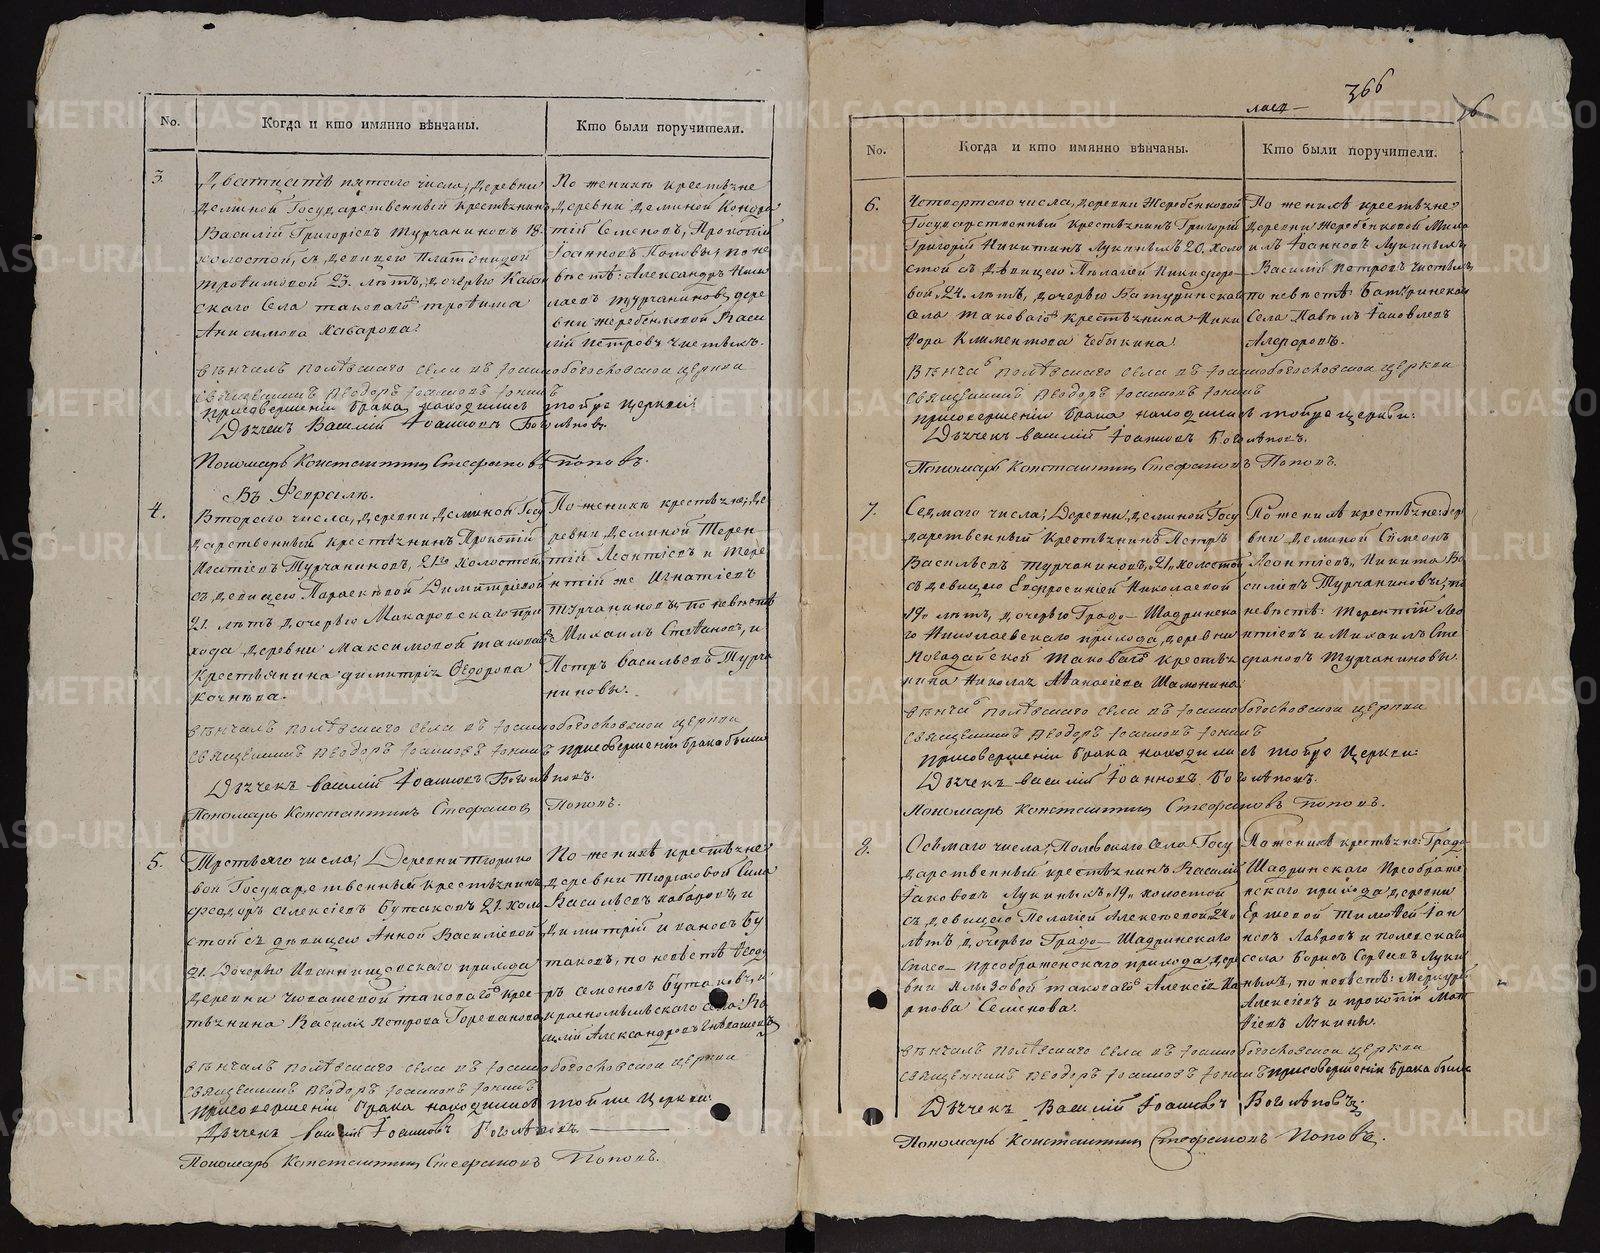 No.
Когда и кто имянно вѣнчаны.
Кто были поручители.
3.
Дватцать пятаго числа, Деревни
Деминой Государственный Крестьянинъ
Василій Григоріевъ Турчаниновъ 18.
холостой, съ девицею Платонидой
Трофимовой 23. лѣтъ, дочерью
скаго Села таковаго Трофима
Анисимова Хабарова.
По женихѣ крестьяне
Деревни Деминой Кондра
тій Семеновъ, Прокопій
Іоанновъ Поповы; по не
вѣстѣ: Александръ Нико
лаевъ Турчаниновъ, дере
вни Жеребенковой Васи
лій Петровъ
вѣнчалъ села въ Іоаннобогословской церкви
священникъ Ѳеодоръ Іоанновъ
При совершеніи брака находились той же Церкви:
Дьячекъ Василій Іоанновъ Боголѣповъ.
Пономарь Константинъ Стефановъ Поповъ.
Въ Февралѣ.
4.
Втораго числа, деревни Деминой Госу
дарственный крестьянинъ Прокопій
Игнатіевъ Турчаниновъ, 21. холостой,
съ девицею Параскевой Димитріевой
21. лѣтъ дочерью Макаровскаго при
хода деревни Максимовой таковаго
Крестьянина Димитрія Ѳедорова
По женихѣ крестьяне, Де
ревни Деминой Терен
тій Леонтіевъ и Тере
нтій же Игнатіевъ
Турчаниновъ; по невѣстѣ
Михаилъ Стефановъ, и
Петръ Васильевъ Турча
ниновы.
вѣнчалъ села въ Іоаннобогословской церкви
священникъ Ѳеодоръ Іоанновъ при совершеніи брака были
Дьячекъ Василій Іоанновъ Боголѣповъ.
Пономарь Константинъ Стефановъ Поповъ.
5.
Третьяго числа, Деревни Тюрико
вой Государственный крестьянинъ
Феодоръ Алексіевъ Бутаковъ 21. холо
стой съ дѣвицею Анной Василіевой
21. Дочерью прихода
деревни таковаго крес
тьянина Василія Петрова
По женихѣ крестьяне
деревни Тюриковой Сила
Васильевъ и
Димитрій Ивановъ Бу
таковъ, по невѣстѣ Ѳеодо
ръ Семеновъ Бутаковъ, и
красномыльскаго села: Ва
силій Александровъ
вѣнчалъ села въ Іоаннобогословской церкви
священникъ Ѳеодоръ Іоанновъ
При совершеніи брака находились той же Церкви:
Дьячекъ Василій Іоанновъ Боголѣповъ.
Пономарь Константинъ Стефановъ Поповъ.
366
6
No.
Когда и кто имянно вѣнчаны.
Кто были поручители.
6.
Четвертаго числа, деревни Жеребенковой
Государственный Крестьянинъ Григорій
Григорій Никитинъ Лукиныхъ 20. холо
стой съ Дѣвицею Пелагіей Никифоро
вой 24. лѣтъ, дочерью Батуринскаго
села таковаго крестьянина Ники
фора Климентова Чебыкина.
По женихѣ крестьяне
деревни Жеребенковой Миха
илъ Іоанновъ Лукиныхъ
Василій Петровъ
по невѣстѣ: Батуринскаго
Села Павелъ Іаковлевъ
Алферовъ.
Вѣнчалъ села въ Іоаннобогословской церкви
священникъ Ѳеодоръ Іоанновъ
При совершеніи брака находились той же церкви:
Дьячекъ Василій Іоанновъ Боголѣповъ.
Пономарь Константинъ Стефановъ Поповъ.
7.
Седмаго числа, Деревни Деминой Госу
дарственный Крестьянинъ Петръ
Васильевъ Турчаниновъ, 21. холостой
съ девицею Евфросиніей Николаевой
19. лѣтъ, дочерью Градо-Шадринска
го Николаевскаго прихода, деревни
таковаго крестья
нина Николая Аѳанасіева
По женихѣ крестьяне: дер
вни Деминой Симеонъ
Леонтіевъ, Никита Ва
силіевъ Турчаниновы, по
невѣстѣ: Терентій Лео
нтіевъ и Михаилъ Сте
фановъ Турчаниновы.
вѣнчалъ села въ Іоаннобогословской церкви
священникъ Ѳеодоръ Іоанновъ
При совершеніи брака находились той же Церкви:
Дьячекъ Василій Іоанновъ Боголѣповъ.
Пономарь Константинъ Стефановъ Поповъ.
8.
Осьмаго числа, Полевскаго Села Госу
дарственный крестьянинъ Василій
Іакововъ Лукиныхъ 19. холостой
съ девицею Пелагіей Алексеевой 24.
лѣтъ дочерью Градо-Шадринскаго
Спасо-Преображенскаго прихода дере
вни таковаго Алексія
Семенова.
По женихѣ крестьяне: Градо
Шадринскаго Преображе
нскаго прихода деревни
Ершевой Тимофей Іоан
новъ Лавровъ и полевскаго
села Борисъ Сергіевъ Луки
ныхъ, по невѣстѣ: Меркурій
Алексіевъ и Прокопій Мат
фіевъ
вѣнчалъ села въ Іоаннобогословской церкви
священникъ Ѳеодоръ Іоанновъ при совершеніи брака были
Дьячекъ Василій Іоанновъ Боголѣповъ.
Пономарь Константинъ Стефановъ Поповъ.
METRIKI.GASO-URAL.RU